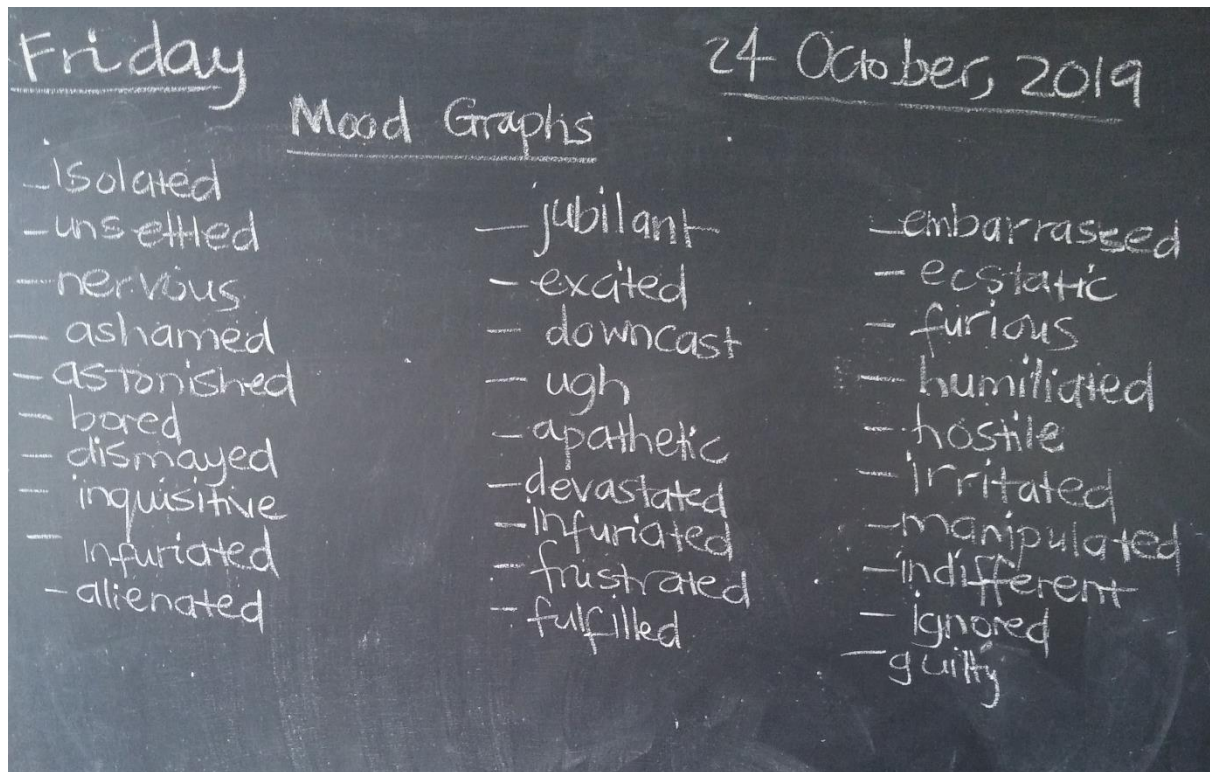 Friday
24 October, 2019
Mood Graphs
- isolated
- unsettled
- nervous
- ashamed
- astonished
- bored
- dismayed
- inquisitive
- infuriated
- alienated
- jubilant
- excited
- downcast
- ugh
- apathetic
- devastated
- infuriated
- frustrated
- fulfilled
- embarrassed
- ecstatic
- furious
- humiliated
- hostile
- irritated
- manipulated
- indifferent
- ignored
- guilty